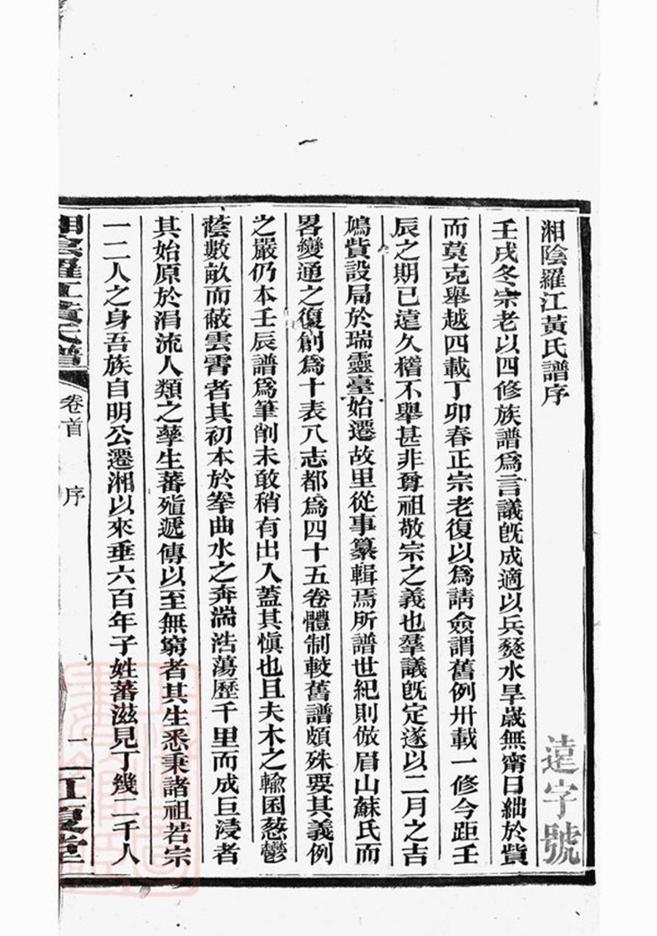 湘陰羅江黃氏譜序
遠字號
壬戌冬宗老以四修族譜爲言議旣成適以兵燹水旱歲無甯日絀於貲
而莫克舉越四載丁卯春正宗老復以爲請僉謂舊例卅載一修今距壬
辰之期已遠久稽不舉甚非尊祖敬宗之義也羣議旣定遂以二月之吉
鳩貲設局於瑞靈臺始遷故里從事纂輯焉所譜世紀則倣眉山蘇氏而
畧變通之復創爲十表八志都爲四十五卷體制較舊譜頗殊要其義例
之嚴仍本壬辰譜爲筆削未敢稍有出入蓋其愼也且夫木之輪囷葱鬱
蔭數畝而蔽雲霄者其初本於拳曲水之奔湍浩蕩歷千里而成巨浸者
其始原於涓流人類之孳生蕃殖遞傳以至無窮者其生悉秉諸祖若宗
一二人之身吾族自明公遷湘以來垂六百年子姓蕃滋見丁幾二千人
湘陰羅江黃氏譜 卷首 序 一 江夏堂